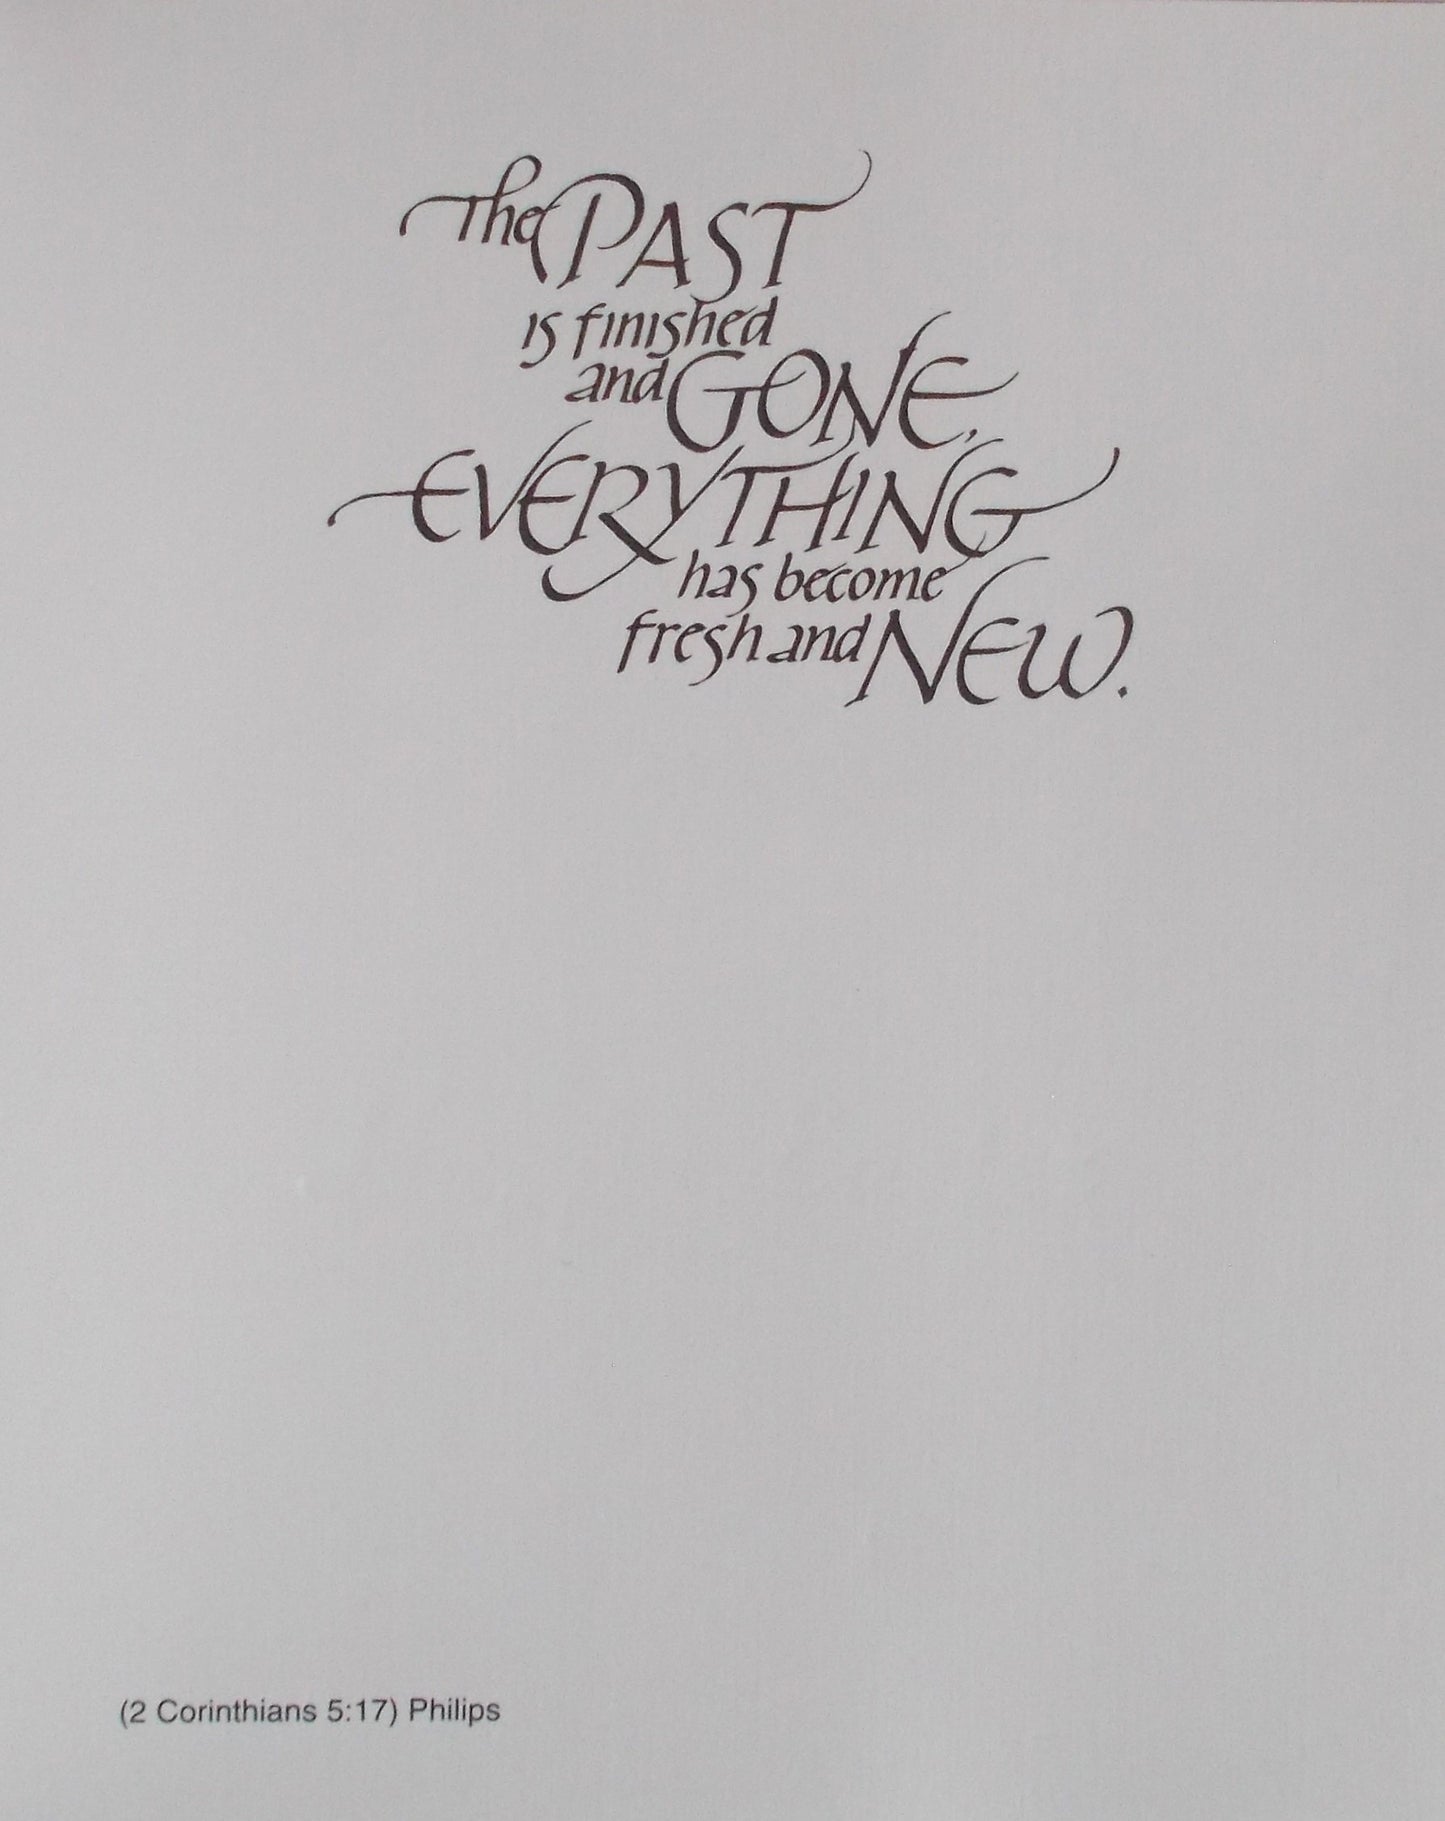 The PAST
is finished
and GONE,
EVERYTHING
has become
fresh and NEW.
(2 Corinthians 5:17) Philips